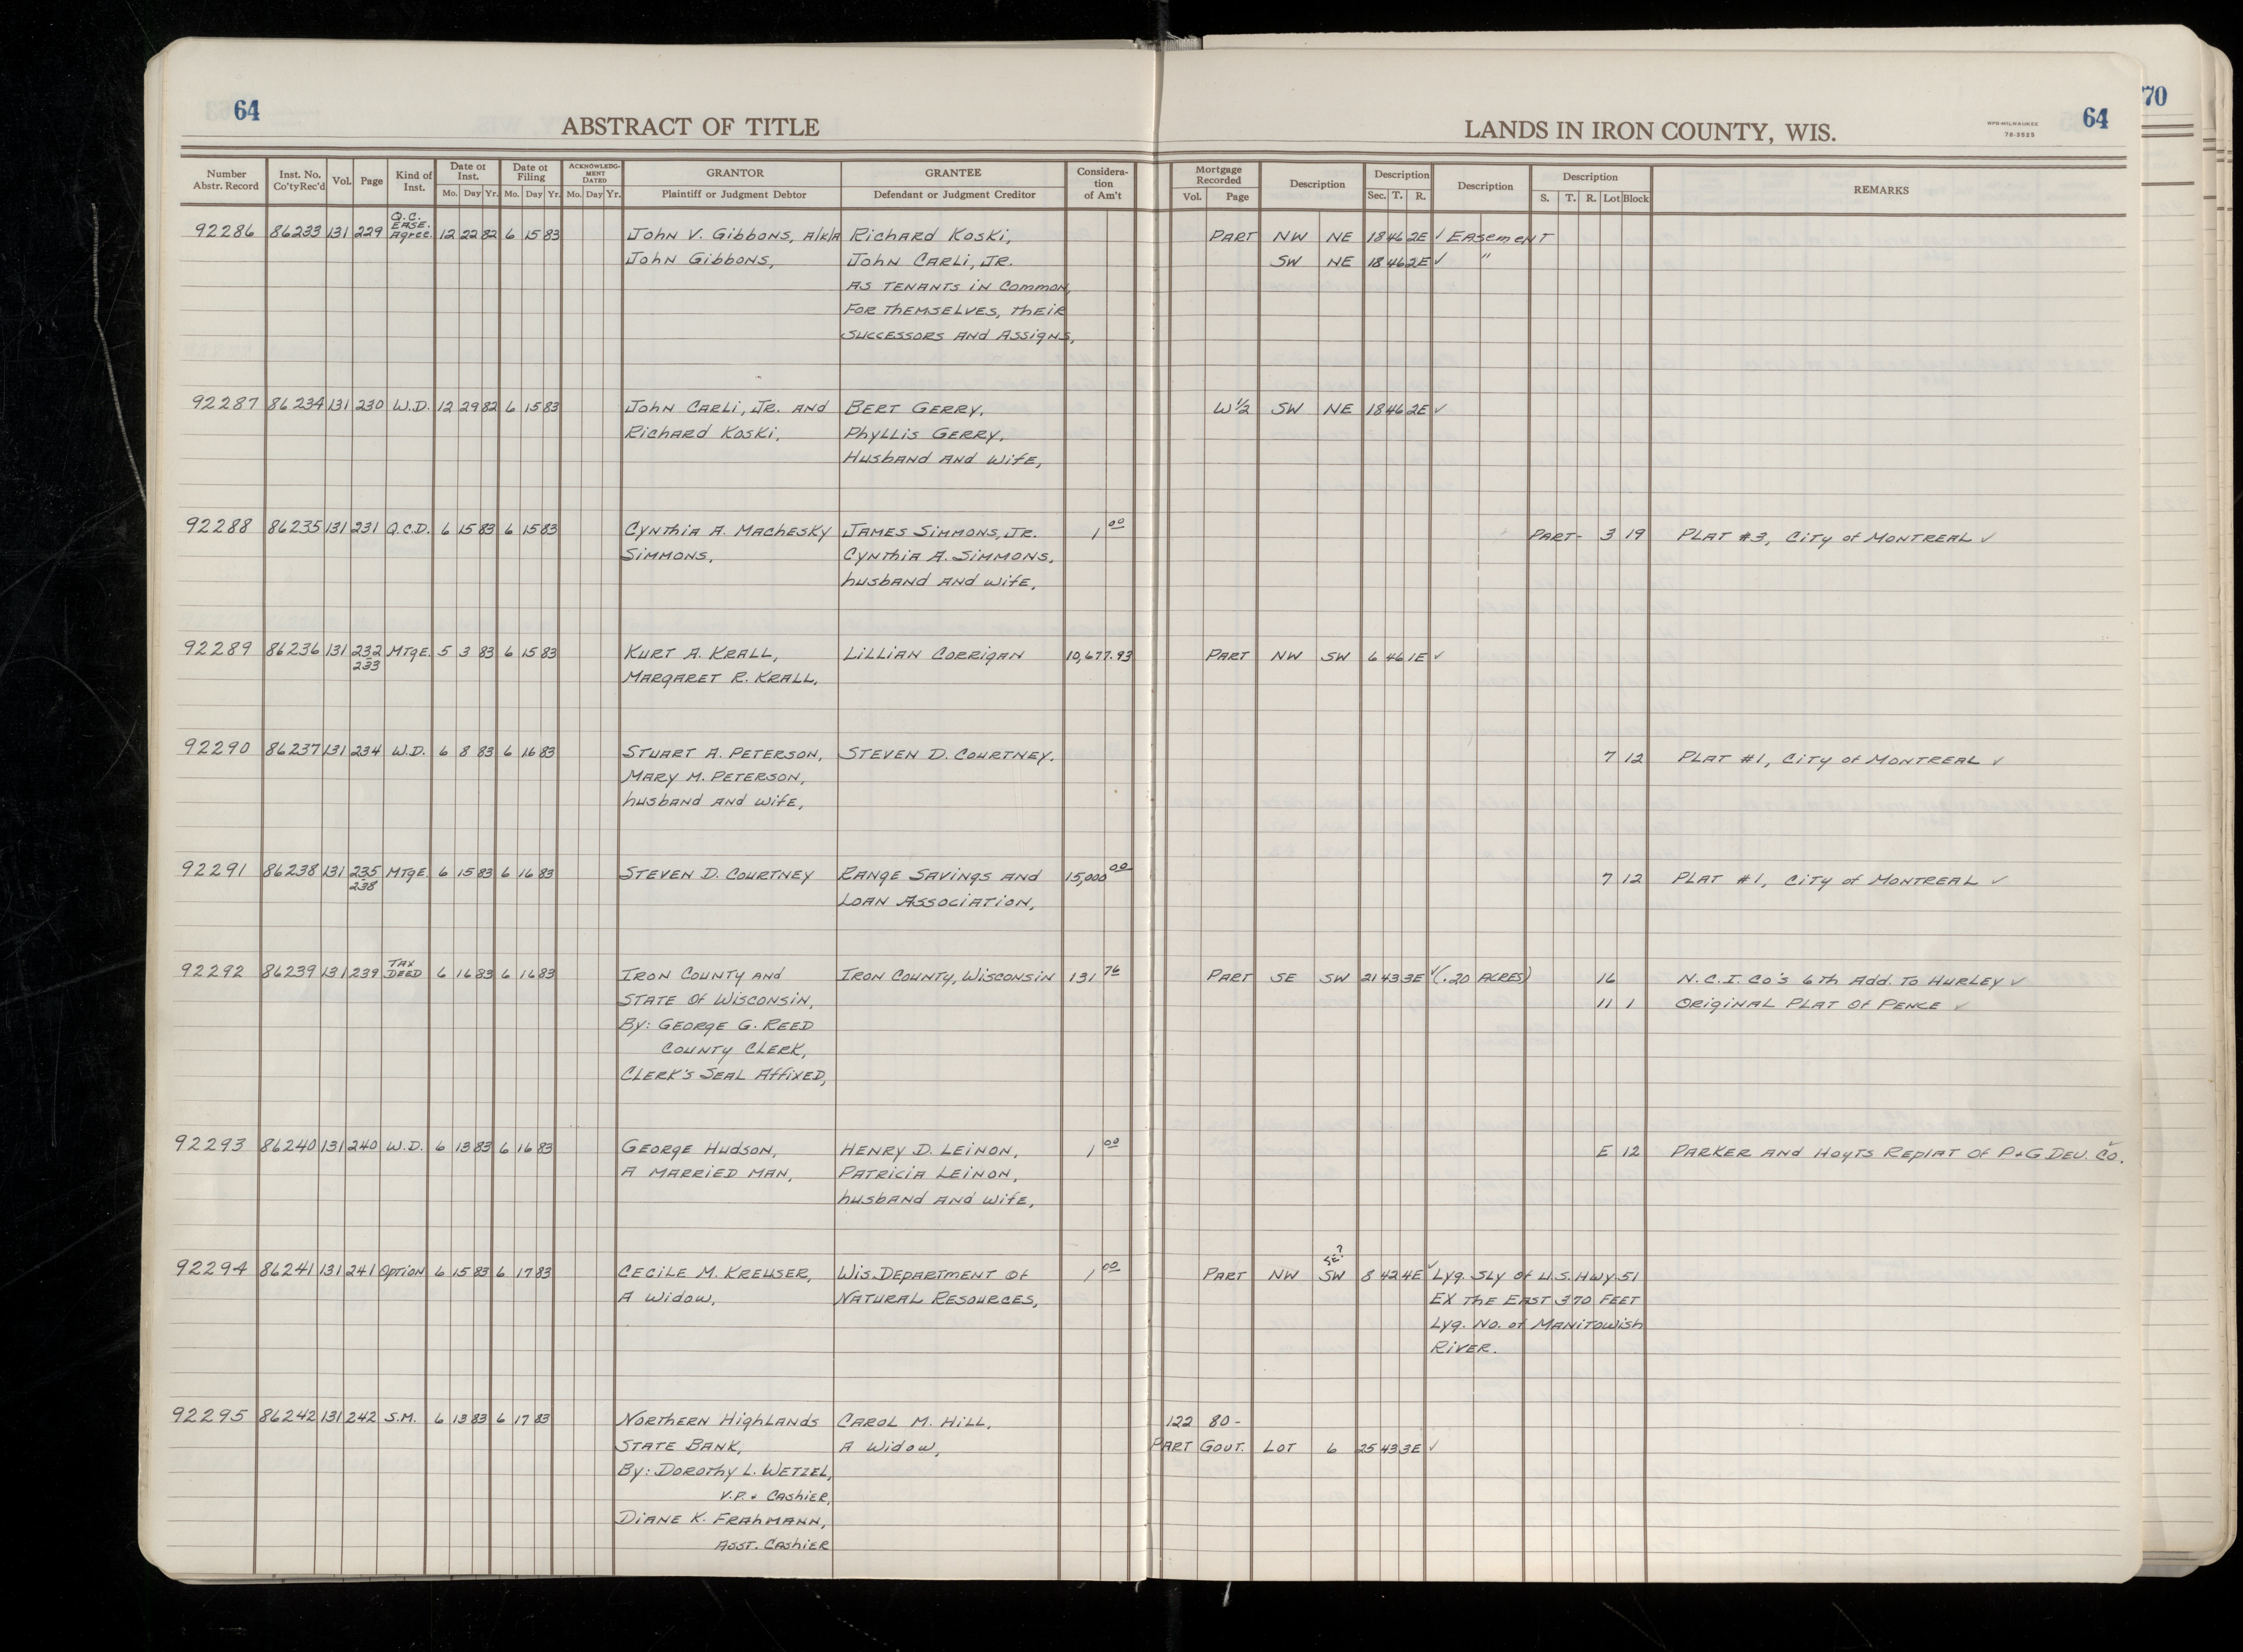 64
ABSTRACT OF TITLE
LANDS IN IRON COUNTY, WIS.
WPR-MILWAUKEE
78-3525
64
70
Number Abstr. Record | Inst. No. Co'ty Rec'd | Vol. | Page | Kind of Inst. | Date of Inst. Mo. Day Yr. | Date of Filing Mo. Day Yr. | ACKNOWLEDGMENT DATED Mo. Day Yr. | GRANTOR Plaintiff or Judgment Debtor | GRANTEE Defendant or Judgment Creditor | Consideration of Am't | Mortgage Recorded Vol. Page | Description | Description Sec. T. R. | Description | Description S. T. R. Lot Block | REMARKS
92286 86233 131 229 Q.C. EASE. Agree. 12 22 82 6 15 83 John V. Gibbons, A/K/A Richard Koski, PART NW NE 18 46 2E ✓ Easement
John Gibbons, John Carli, Jr. SW NE 18 46 2E ✓ "
AS TENANTS IN COMMON,
FOR THEMSELVES, THEIR
SUCCESSORS AND ASSIGNS,
92287 86234 131 230 W.D. 12 29 82 6 15 83 John Carli, Jr. AND BERT GERRY, W 1/2 SW NE 18 46 2E ✓
Richard Koski, Phyllis GERRY,
Husband AND Wife,
92288 86235 131 231 Q.C.D. 6 15 83 6 15 83 Cynthia A. Machesky JAMES SIMMONS, JR. 1 00 PART- 3 19 PLAT #3, City of MONTREAL ✓
SIMMONS, Cynthia A. SIMMONS,
husband AND wife,
92289 86236 131 232 MTgE. 5 3 83 6 15 83 KURT A. KRALL, LILLIAN CORRIGAN 10,677.93 PART NW SW 6 46 1E ✓
233 MARGARET R. KRALL,
92290 86237 131 234 W.D. 6 8 83 6 16 83 STUART A. PETERSON, STEVEN D. COURTNEY. 7 12 PLAT #1, City of MONTREAL ✓
MARY M. PETERSON,
husband AND wife,
92291 86238 131 235 MTgE. 6 15 83 6 16 83 STEVEN D. COURTNEY RANGE SAVINGS AND 15,000 00 7 12 PLAT #1, City of MONTREAL ✓
238 LOAN ASSOCIATION,
92292 86239 131 239 TAX DEED 6 16 83 6 16 83 IRON COUNTY AND IRON COUNTY, WISCONSIN 131 76 PART SE SW 21 43 3E ✓ (.20 ACRES) 16 N.C.I. Co's 6th Add. To HURLEY ✓
STATE OF WISCONSIN, 11 1 ORIGINAL PLAT OF PENCE ✓
By: GEORGE G. REED
COUNTY CLERK,
CLERK'S SEAL AFFIXED,
92293 86240 131 240 W.D. 6 13 83 6 16 83 GEORGE HUDSON, HENRY D. LEINON, 1 00 E 12 PARKER AND HOYTS REPLAT OF P+G DEV. CO. ✓
A MARRIED MAN, PATRICIA LEINON,
husband AND wife,
SE?
92294 86241 131 241 OPTION 6 15 83 6 17 83 CECILE M. KREUSER, WIS. DEPARTMENT OF 1 00 PART NW SW 8 42 4E ✓ Lyg. SLY of U.S. HWY 51
A WIDOW, NATURAL RESOURCES, EX THE EAST 370 FEET
Lyg. No. of MANITOWISH
RIVER.
92295 86242 131 242 S.M. 6 13 83 6 17 83 NORTHERN HIGHLANDS CAROL M. HILL, 122 80-
STATE BANK, A WIDOW, PART GOVT. LOT 6 25 43 3E ✓
By: DOROTHY L. WETZEL,
V.P. + CASHIER,
DIANE K. FRAHMANN,
ASST. CASHIER